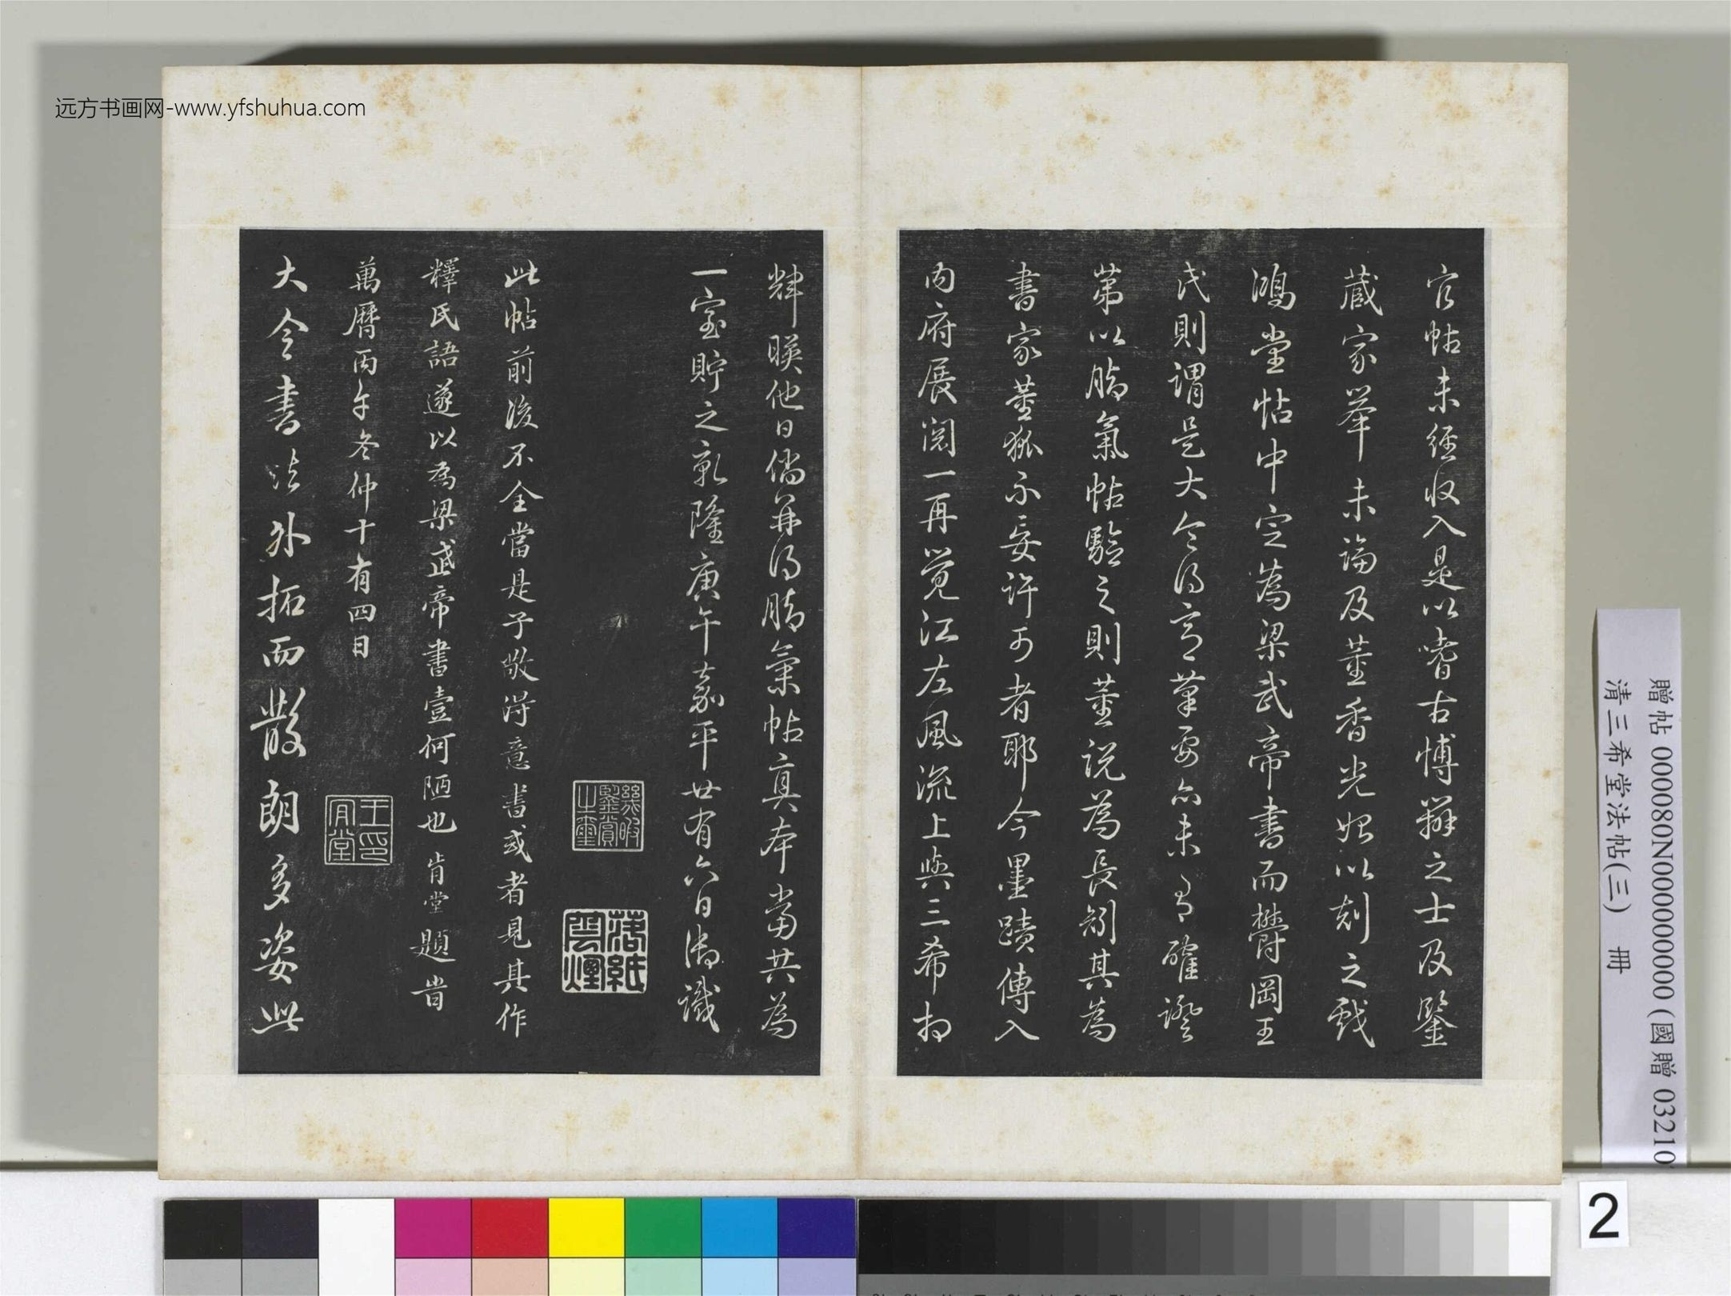 远方书画网-www.yfshuhua.com
官帖未經收入是以嗜古博辯之士及鑒
藏家举未論及董香光始以刻之戲
鴻堂帖中定為梁武帝書而鬱岡王
氏則謂是大令得意筆要亦未有確證
第以鴨氣帖驗之則董說為長矧其為
書家董狐不妄許可者耶今墨蹟傳入
内府展閱一再覺江左風流上與三希相
輝暎他日倘并得鴨氣帖真本當共為
一室貯之乾隆庚午嘉平廿有六日御識
幾暇鑒賞之璽
落紙雲煙
此帖前後不全當是子敬得意書或者見其作
釋氏語遂以為梁武帝書壹何陋也肯堂題旹
萬曆丙午冬仲十有四日
王肯堂印
大令書法外拓而散朗多姿此
贈帖 000080N000000000 (國贈 03210
清三希堂法帖(三) 冊
2